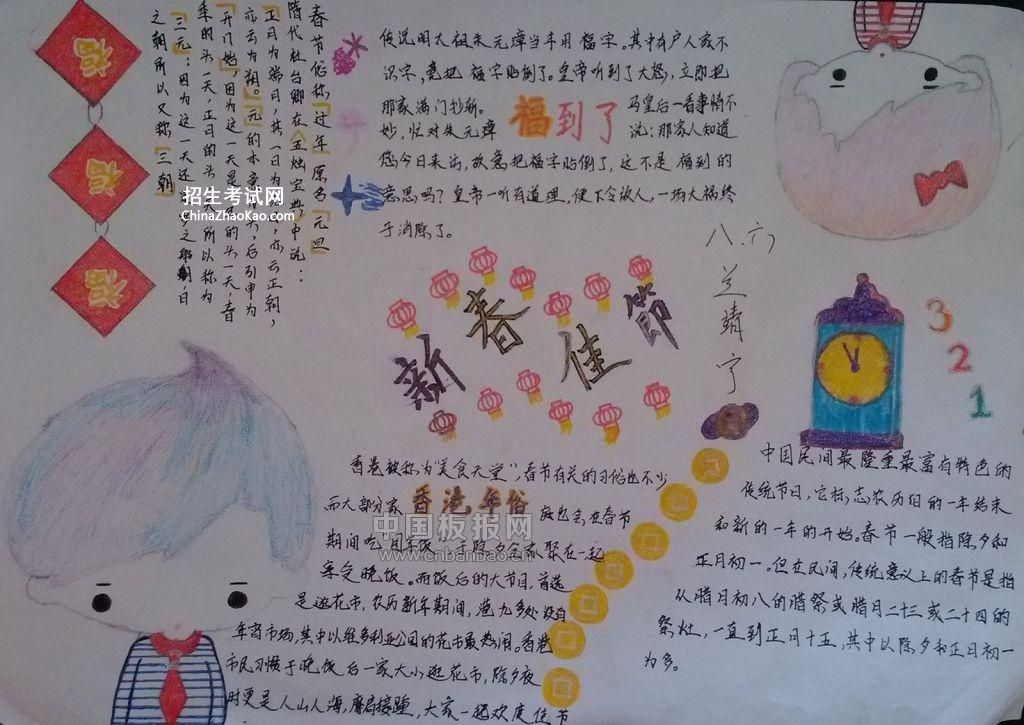 春节俗称「过年」原名「元旦」
隋代杜台卿在《五烛宝典》中说：
正月为端月，其一日为元日，亦云正朝，
亦云为朔。「元」的本意为头，后引申为
「开始」，因为这一天是一年的头一天，春
季的头一天，正月的头一天，所以称为
「三元」；因为这一天还是岁之朝，月
之朝所以又称「三朝」
福
福
福
招生考试网
ChinaZhaoKao.com
传说明太祖朱元璋当年用福字。其中有户人家不
识字，竟把福字贴倒了。皇帝听到了大怒，立即把
那家满门抄斩。马皇后一看事情不
妙，忙对朱元璋说：那家人知道
福到了
您今日来访，故意把福字贴倒了，这不是福到的
意思吗？皇帝一听有道理，便下令放人，一场大祸终
于消除了。
新春佳節
八.六
兰靖宁
3
2
1
香港被称为“美食天堂”，春节有关的习俗也不少
而大部分家庭也会在春节
香港年俗
中国板报网
www.cnbanbao.cn
期间吃团年饭，于除夕全家聚在一起
享受晚饭。而饭后的大节目，首选
是逛花市，农历新年期间，港九多处设有
年宵市场，其中以维多利亚公园的花市最热闹。香港
市民习惯于晚饭后一家大小逛花市，除夕夜
时更是人山人海，摩肩接踵，大家一起欢度佳节
中国民间最隆重最富有特色的
传统节日，它标志农历旧的一年结束
和新的一年的开始。春节一般指除夕和
正月初一。但在民间，传统意义上的春节是指
从腊月初八的腊祭或腊月二十三或二十四的
祭灶，一直到正月十五，其中以除夕和正月初一
为多。